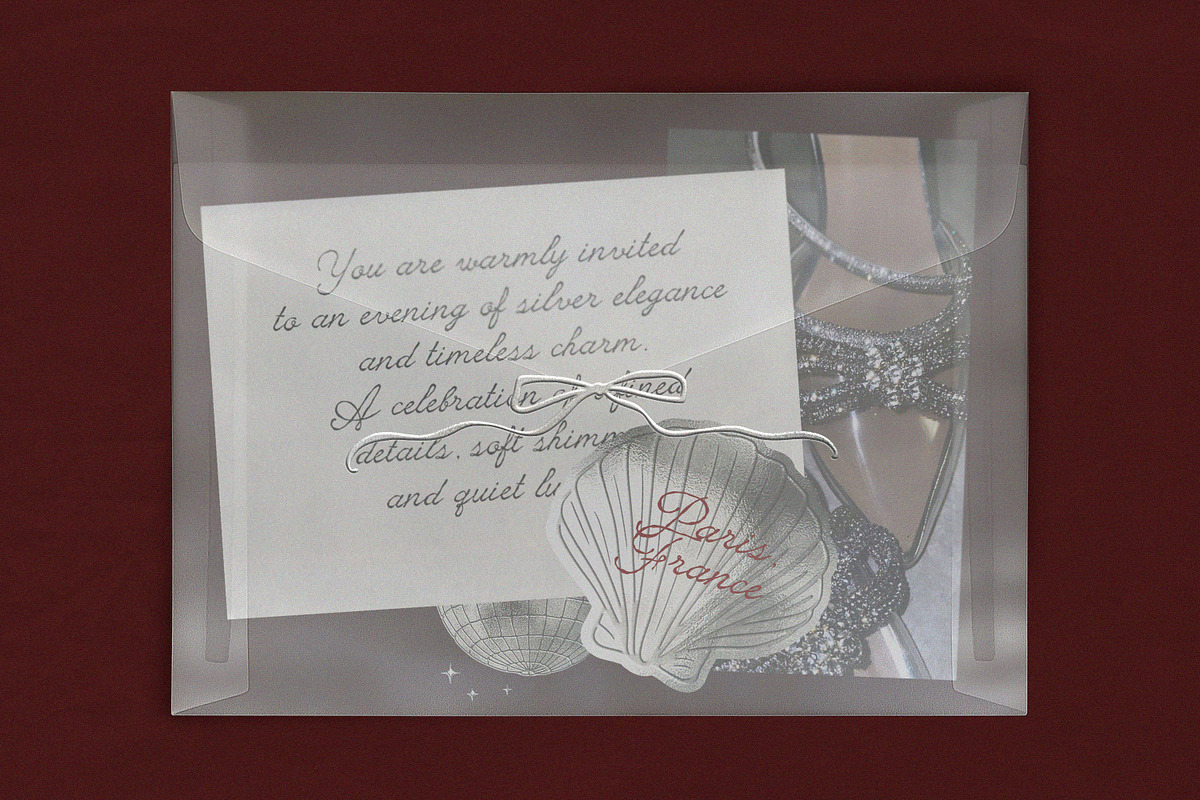 You are warmly invited
to an evening of silver elegance
and timeless charm.
A celebration of refined
details, soft
and quiet
Paris,
France